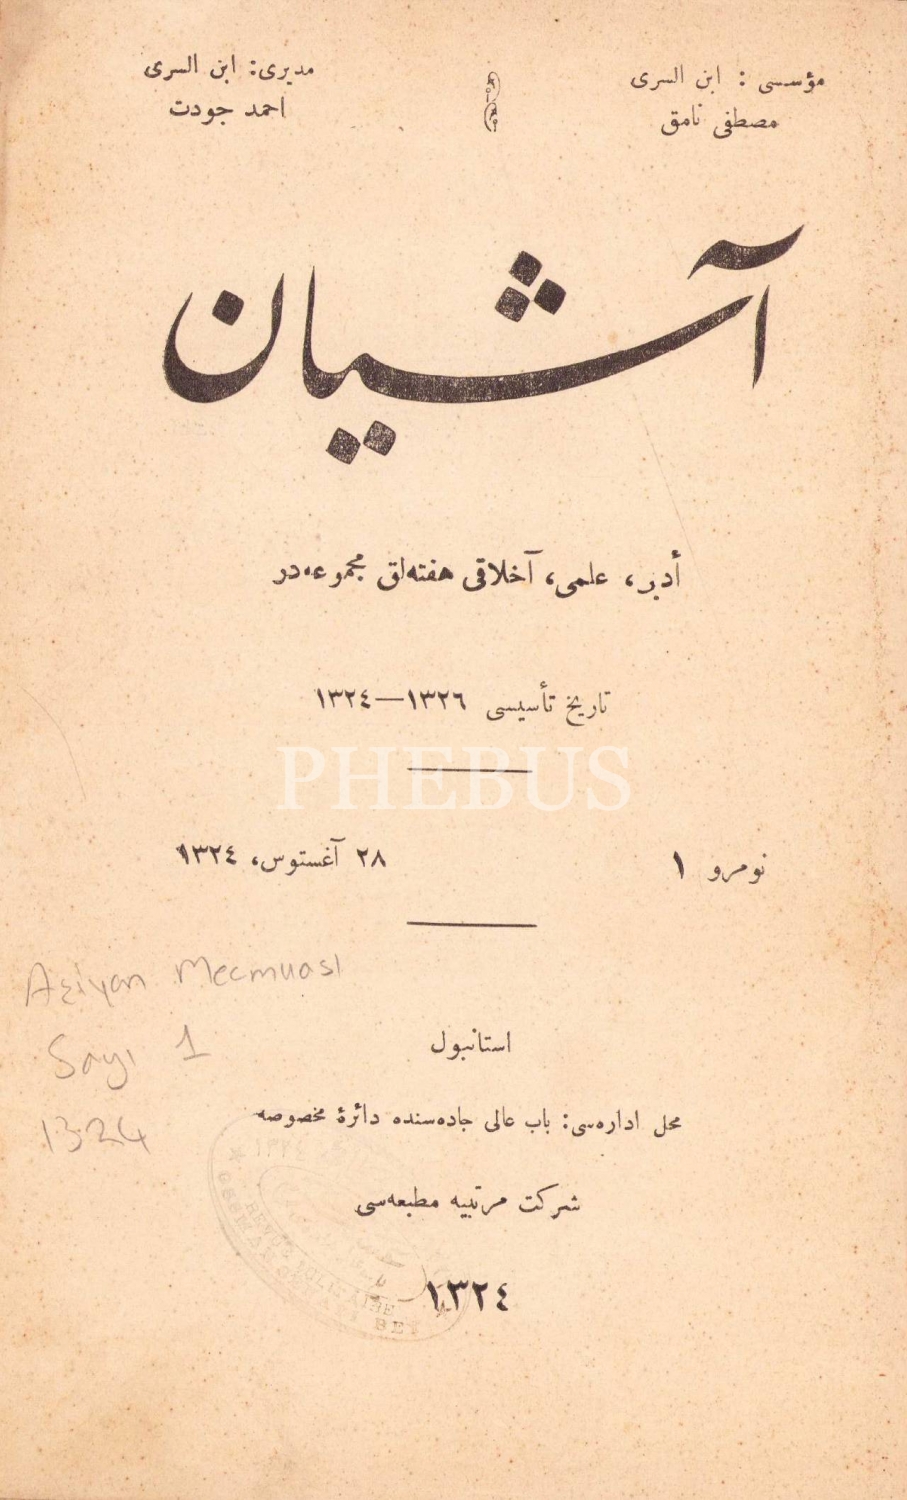 مؤسسی : ابن السری
مصطفی نامق
مدیری: ابن السری
احمد جودت
آشیان
أدبی، علمی، آخلاقی هفته‌لق مجموعه‌در
تاریخ تأسیسی ١٣٢٦—١٣٢٤
PHEBUS
نومرو ١
٢٨ آغستوس، ١٣٢٤
Aşiyan Mecmuası
Sayı 1
1324
استانبول
محل اداره‌سی: باب عالی جاده‌سنده دائرهٔ مخصوصه
شرکت مرتبیه مطبعه‌سی
١٣٢٤